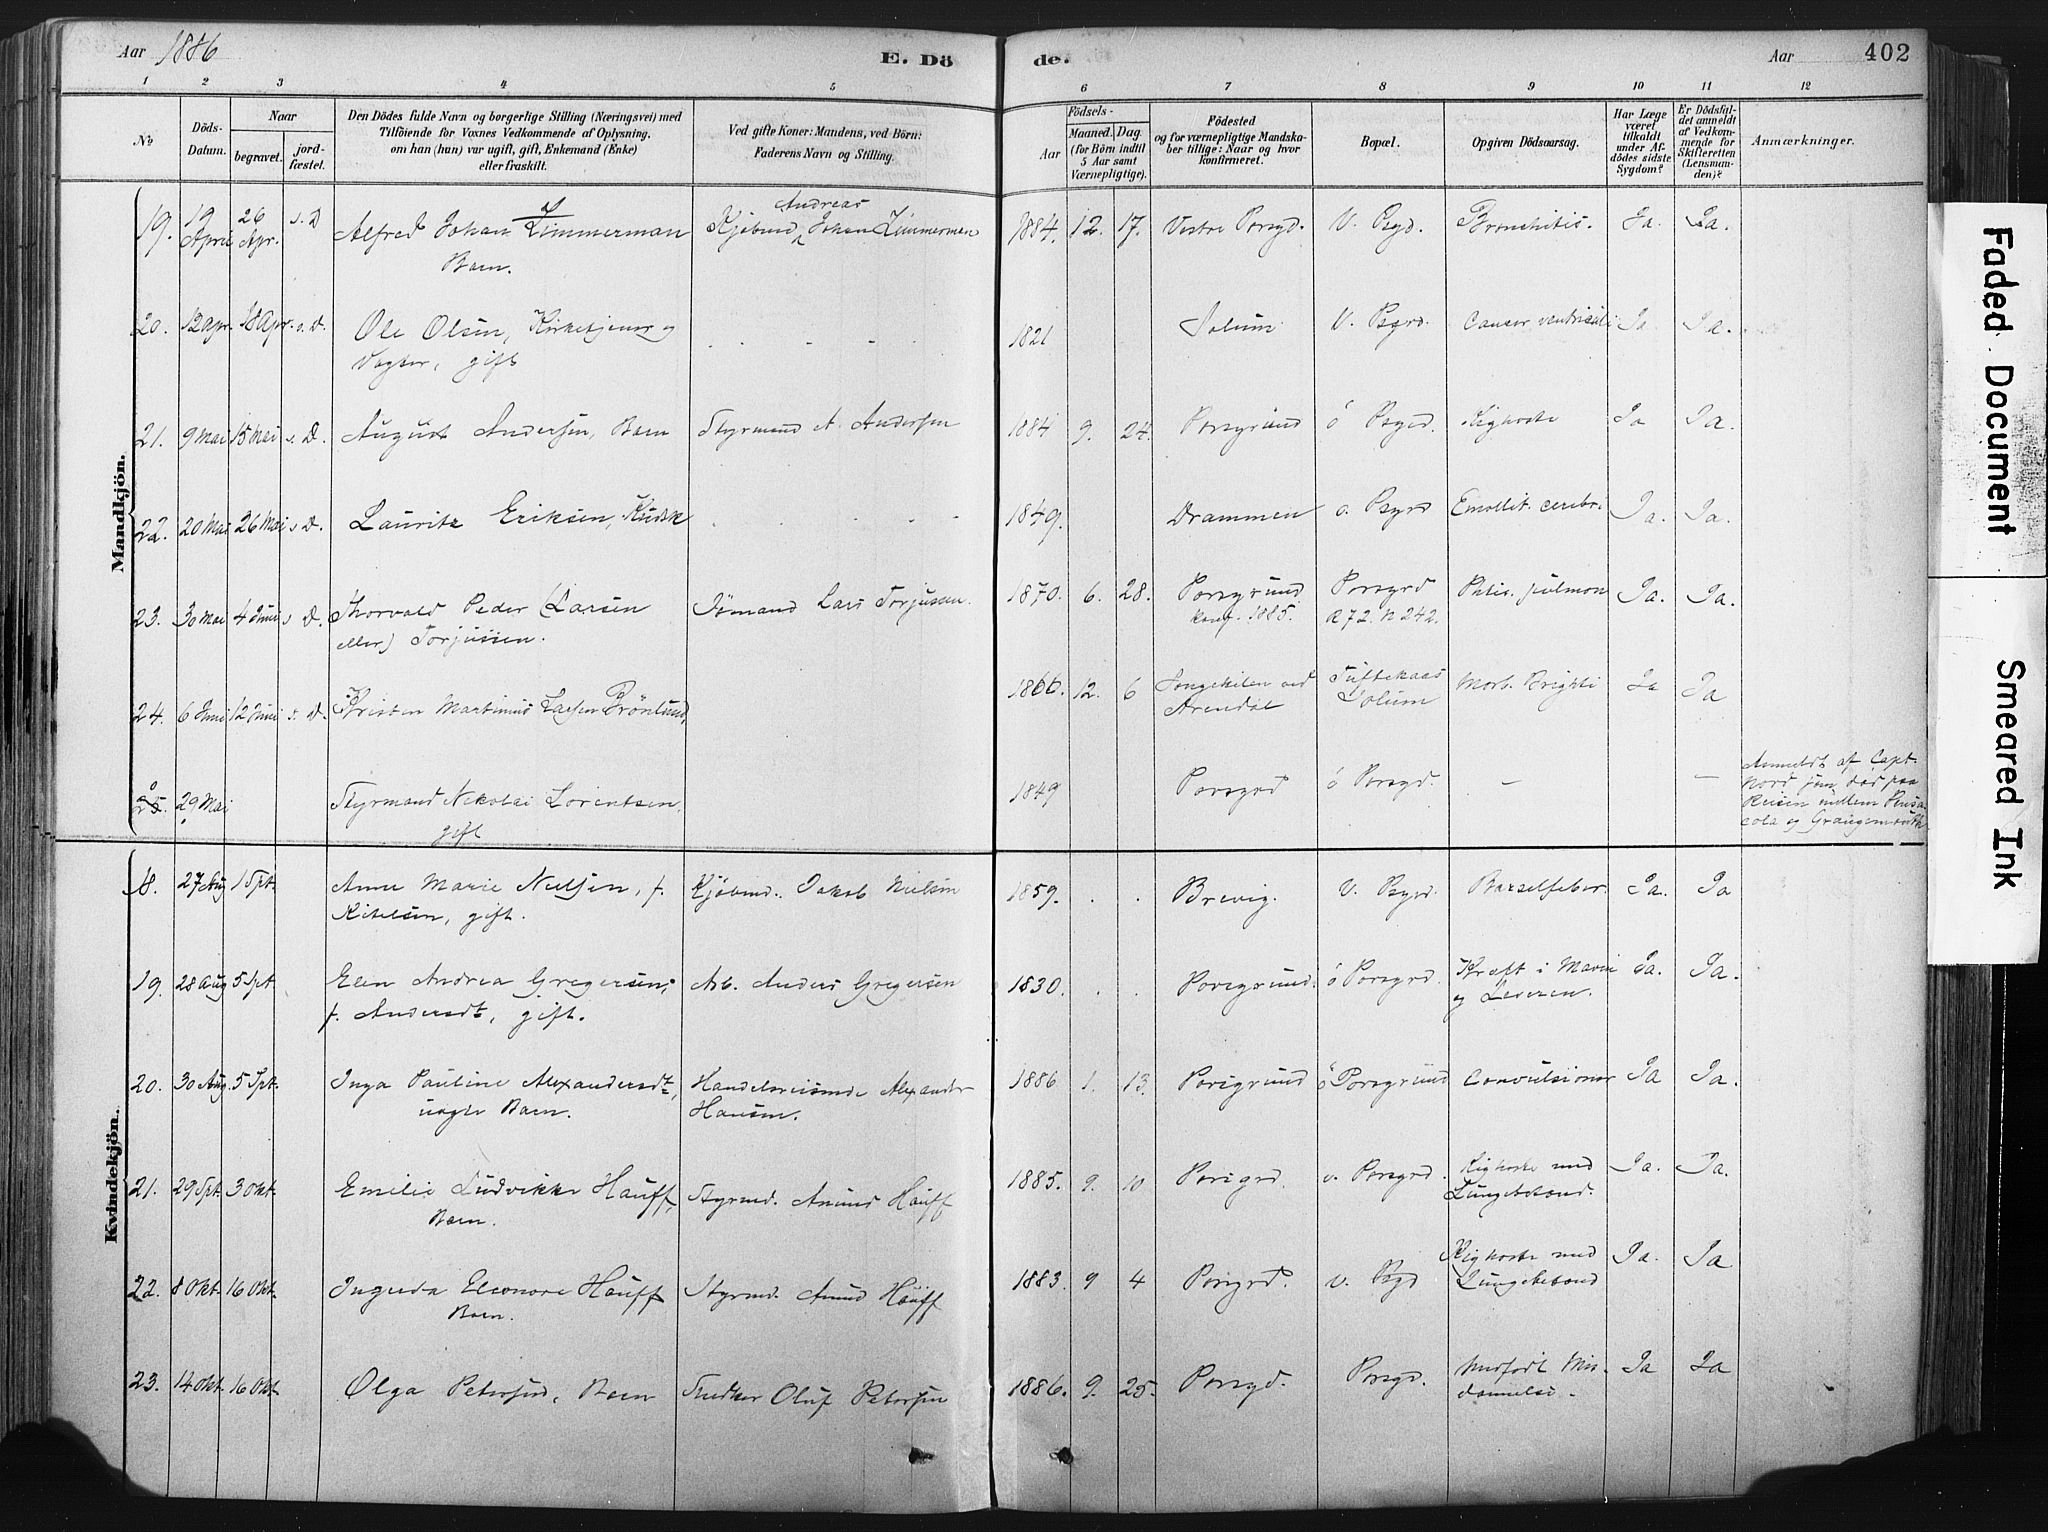 Aar 1886 E. Dö de. Aar 402
1 2 3 4 5 6 7 8 9 10 11 12
No
Döds-Datum.
Naar
begravet.
jordfæstet.
Den Dödes fulde Navn og borgerlige Stilling (Næringsvei) med
Tilföiende for Voxnes Vedkommende af Oplysning,
om han (hun) var ugift, gift, Enkemand (Enke)
eller fraskilt.
Ved gifte Koner: Mandens, ved Börn:
Faderens Navn og Stilling.
Födsels-
Aar
Maaned. Dag
(for Börn indtil
5 Aar samt
Værnepligtige).
Födested
og for værnepligtige Mandskaber
tillige: Naar og hvor
konfirmeret.
Bopæl.
Opgiven Dödsaarsag.
Har Læge
været
tilkaldt
under Afdödes
sidste
Sygdom?
Er Dödsfaldet
anmeldt
af Vedkommende
for
Skifteretten
(Lensmanden)?
Anmærkninger.
Mandkjön.
Andreas
19. 19 April 26 Apr. s. D Alfred Johan Zimmerman Kjöbmd Johan Zimmerman 1884. 12. 17. Vestre Porsgd. V. Psgd. Bronchitis. Ja. Ja.
Barn.
20. 12 Apr. 18 Apr. s. D. Ole Olsen, Kirketjener og 1821 Solum V. Psgrd. Cancer ventriculi Ja. Ja.
Vægter, gift
21. 9 Mai 15 Mai s. D. August Andersen, Barn Styrmand A. Andersen 1884 9. 24. Porsgrund ö Psgrd. Kighoste Ja Ja.
22. 20 Mai 26 Mai s. D. Lauritz Eriksen, Kudsk 1849. Drammen ö. Psgrd Emollit. cerebri Ja. Ja.
23. 30 Mai 4 Juni s. D. Thorvald Peder (Larsen Sömand Lars Torjussen. 1870. 6. 28. Porsgrund Porsgrd Phtis. pulmon Ja. Ja.
eller) Torjussen. konf. 1885. R 72. N 242.
24. 6 Juni 12 Juni s. D. Kristen Martinius Larsen Brönlund, 1860. 12. 6 Songekilen ved Tuftekaas Morb. Brighti Ja Ja
Arendal Solum
25. 29 Mai Styrmand Nikolai Lorentsen, 1849 Porsgrd ö Porsgd. – –
gift
Anmeldt af Capt.
Nord som död paa
Reisen mellem Pensacola
og Grangemouth
Kvindekjön.
18. 27 Aug 1 Spt. Anne Marie Nielsen, f. Kjöbmd. Jakob Nielsen 1859. Brevig. V. Psgrd. Barselfeber. Ja. Ja
Kittelsen, gift.
19. 28 Aug 5 Spt. Elen Andrea Gregersen, Arb. Anders Gregersen 1830. Porsgrund. ö Porsgrd. Kræft i Maven Ja. Ja.
f. Andersdt, gift. og Leveren.
20. 30 Aug. 5 Spt. Inga Pauline Alexandersdt, Handelsreisende Alexander 1886 1. 13. Porsgrund ö Porsgrund Convulsioner Ja Ja.
uægte Barn. Hansen.
21. 29 Spt. 3 Okt. Emilie Ludvikke Hauff, Styrmd. Amund Hauff 1885. 9. 10 Porsgrd. v. Porsgrd. Kighoste med Ja. Ja.
Barn. Lungebetænd.
22. 8 Okt. 16 Okt. Ingrida Eleonore Hauff Styrmd. Amund Hauff 1883. 9 4 Porsgrd. v. Psgd Kighoste med Ja. Ja
Barn. Lungebetænd
23. 14 Okt. 16 Okt. Olga Petersen, Barn Snedker Oluf Petersen 1886. 9. 25. Porsgd. Porsgd. Medfödt Mis- Ja Ja
dannelse.
Faded Document
Smeared Ink